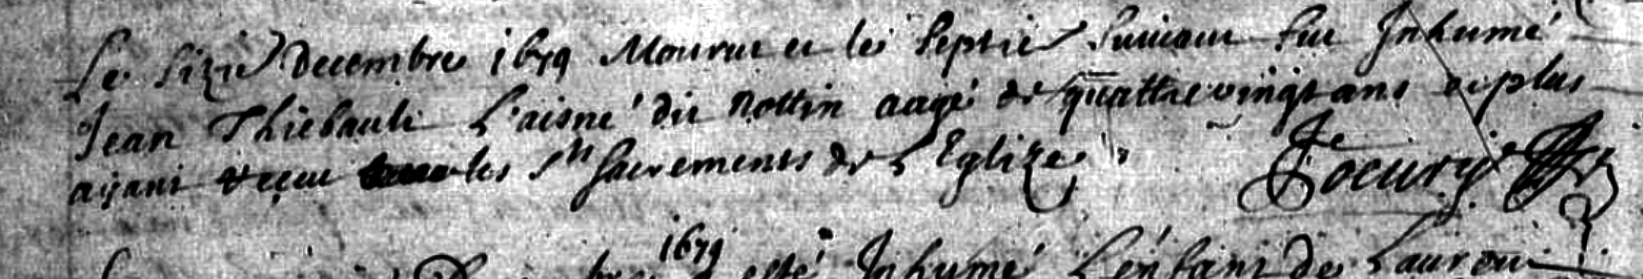 Le sizie Decembre 1679 Mourut et le septie suivant fut Inhumé
Jean Thiebault L'aisné dit Nottin aagé de quattre vingt ans et plus
ayant reçeu les Sts Sacrements de L'Eglize
1679
esté Inhumé L'enfant de